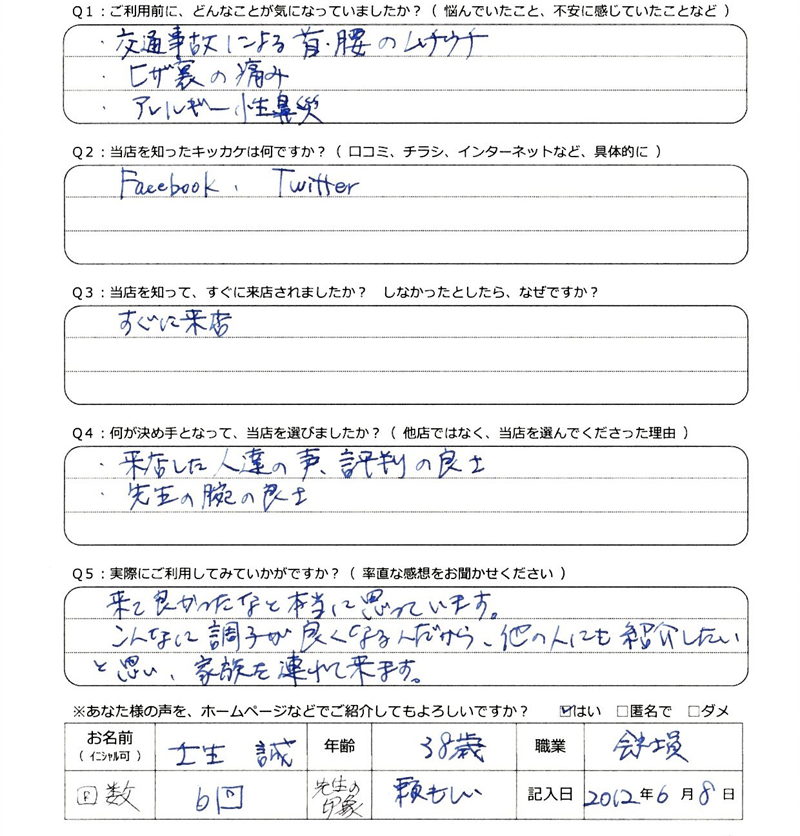 Q1：ご利用前に、どんなことが気になっていましたか？（ 悩んでいたこと、不安に感じていたことなど ）
・交通事故による首・腰のムチウチ
・ヒザ裏の痛み
・アレルギー性鼻炎
Q2：当店を知ったキッカケは何ですか？（ 口コミ、チラシ、インターネットなど、具体的に ）
Facebook、 Twitter
Q3：当店を知って、すぐに来店されましたか？ しなかったとしたら、なぜですか？
すぐに来店
Q4：何が決め手となって、当店を選びましたか？（ 他店ではなく、当店を選んでくださった理由 ）
・来店した人達の声、評判の良さ
・先生の腕の良さ
Q5：実際にご利用してみていかがですか？（ 率直な感想をお聞かせください ）
来て良かったなと本当に思っています。
こんなに調子が良くなるんだから、他の人にも紹介したい
と思い、家族を連れて来ます。
※あなた様の声を、ホームページなどでご紹介してもよろしいですか？ ☑はい □匿名で □ダメ
お名前 （ イニシャル可 ） 壬生 誠 年齢 38歳 職業 会社員
回数 6回 先生の印象 頼もしい 記入日 2012年6月8日